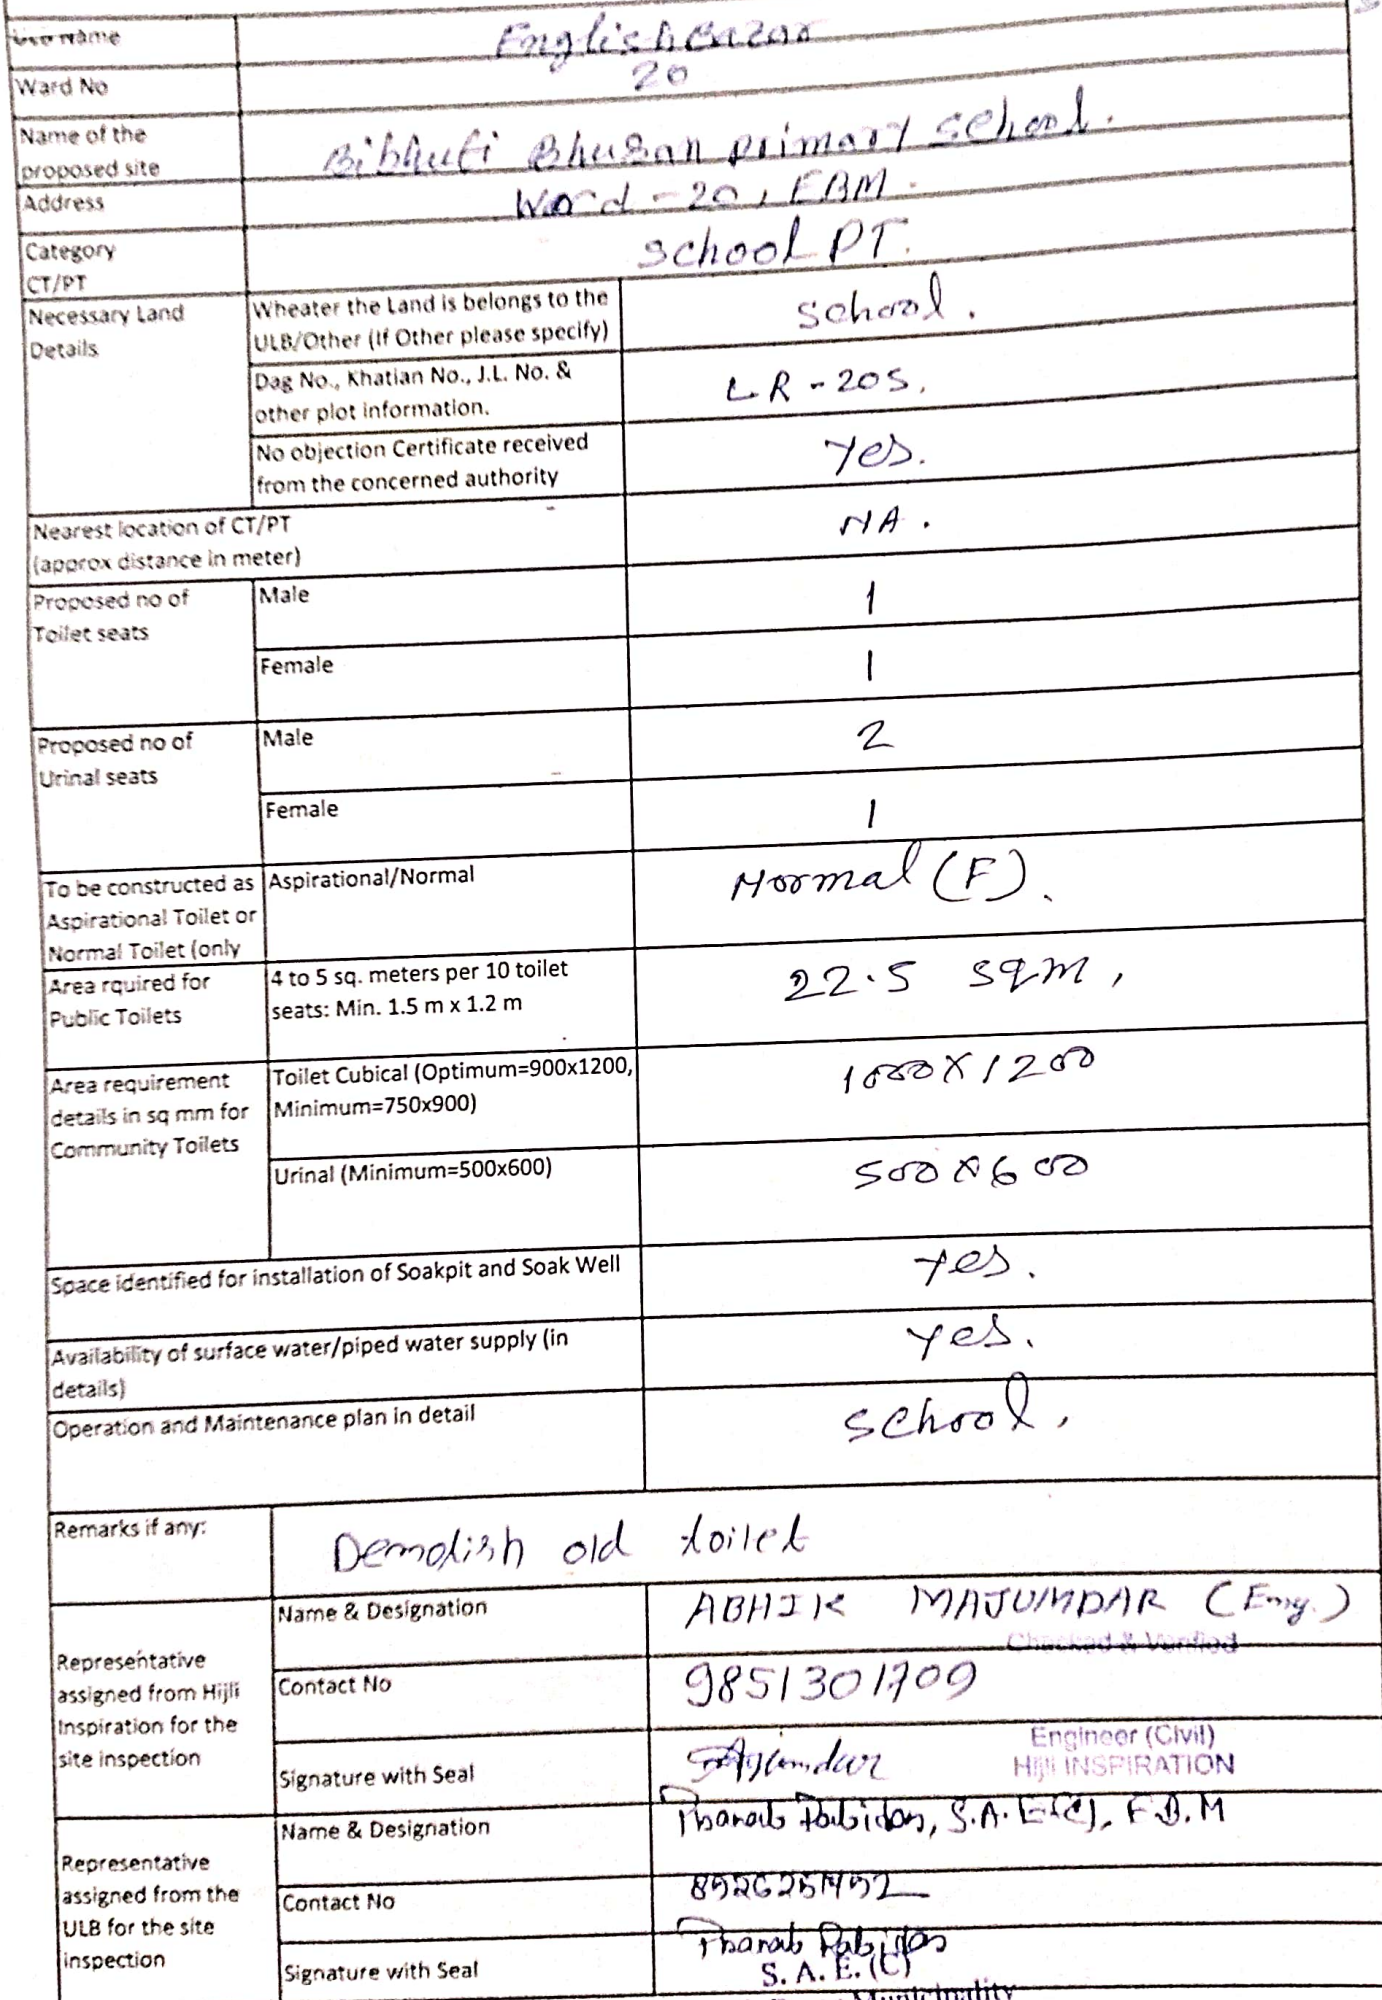 Name
English Bazar
Ward No
20
Name of the
proposed site
Bibhuti Bhusan primary school.
Address
Word - 20, EBM.
Category
CT/PT
school PT.
Necessary Land
Details
Wheater the Land is belongs to the
ULB/Other (If Other please specify)
School.
Dag No., Khatian No., J.L. No. &
other plot information.
LR - 205.
No objection Certificate received
from the concerned authority
Yes.
Nearest location of CT/PT
(approx distance in meter)
NA.
Proposed no of
Toilet seats
Male
1
Female
1
Proposed no of
Urinal seats
Male
2
Female
1
To be constructed as
Aspirational Toilet or
Normal Toilet (only
Aspirational/Normal
Normal (F).
Area rquired for
Public Toilets
4 to 5 sq. meters per 10 toilet
seats: Min. 1.5 m x 1.2 m
22.5 sqm,
Area requirement
details in sq mm for
Community Toilets
Toilet Cubical (Optimum=900x1200,
Minimum=750x900)
1000X1200
Urinal (Minimum=500x600)
500X600
Space identified for installation of Soakpit and Soak Well
yes.
Availability of surface water/piped water supply (in
details)
yes.
Operation and Maintenance plan in detail
school.
Remarks if any:
Demolish old toilet
Representative
assigned from Hijli
Inspiration for the
site inspection
Name & Designation
ABHIK MAJUMDAR (Eng.)
Checked & Verified
Contact No
9851301709
Signature with Seal
Engineer (Civil)
Hijli INSPIRATION
Representative
assigned from the
ULB for the site
inspection
Name & Designation
S.A.E(C), E.B.M
Contact No
Signature with Seal
S. A. E. (C)
Municipality